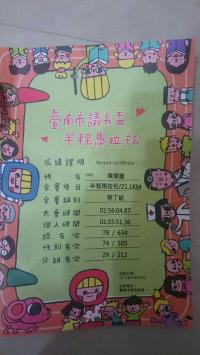 臺南市議長盃
半程馬拉松
成績證明 Record Certificate
姓名
參賽項目 半程馬拉松/21.1KM
參賽組別
大會時間 01:56:04.87
個人時間 01:55:51.36
總名次 78 / 634
性別名次 74 / 505
分組名次 29 / 212